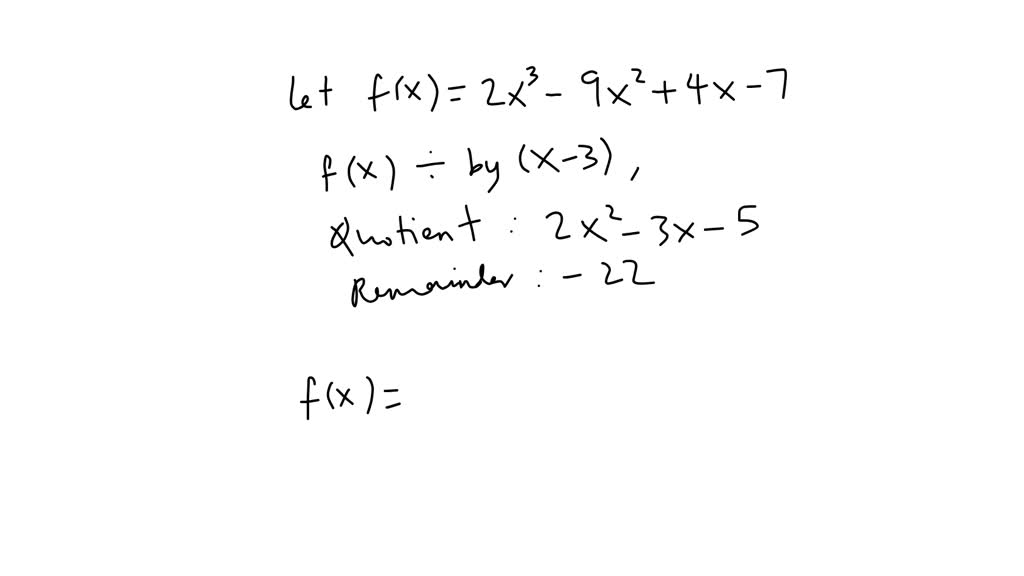 Let f(x) = 2x³ - 9x² + 4x - 7
f(x) ÷ by (x-3),
Quotient : 2x² - 3x - 5
Remainder : - 22
f(x) =